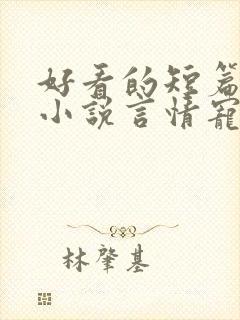 好看的短篇
小说言情宠
林肇基